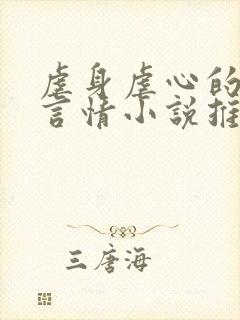 虐身虐心的
言情小說推
三唐海